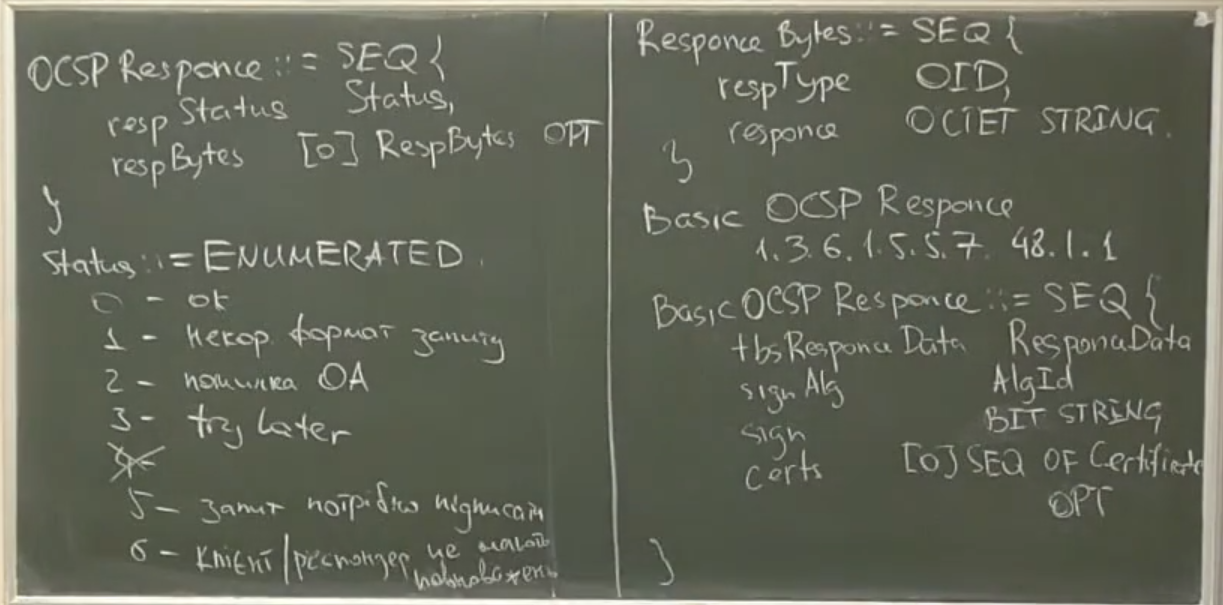 OCSP Responce ::= SEQ {
resp Status Status,
respBytes [0] RespBytes OPT
}
Status ::= ENUMERATED
0 - ok
1 - Некор. формат запиту
2 - помилка ОА
3 - try Later
4 -
5 - запит потрібно підписати
6 - клієнт/респондер не мають повноважень
Responce Bytes ::= SEQ {
respType OID,
responce OCTET STRING.
}
Basic OCSP Responce
1.3.6.1.5.5.7. 48.1.1
Basic OCSP Responce ::= SEQ {
tbsResponce Data ResponceData
sign Alg AlgId
sign BIT STRING
certs [0] SEQ OF Certificate
OPT
}